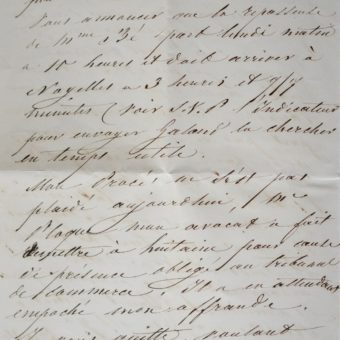 vous annoncer que la repasseuse
de Mme part lundi matin
à 10 heures et doit arriver à
Noyelles à 3 heures et
minutes (voir S.V.P. l'indicateur
pour envoyer la chercher
en temps utile.
Mon Procès ne s'est pas
plaidé aujourd'hui, Me
Ploque mon avocat a fait
remettre à huitaine pour cause
de présence obligé au tribunal
de commerce. Il a en attendant
empoché mon offrande.
vous quitte voulant